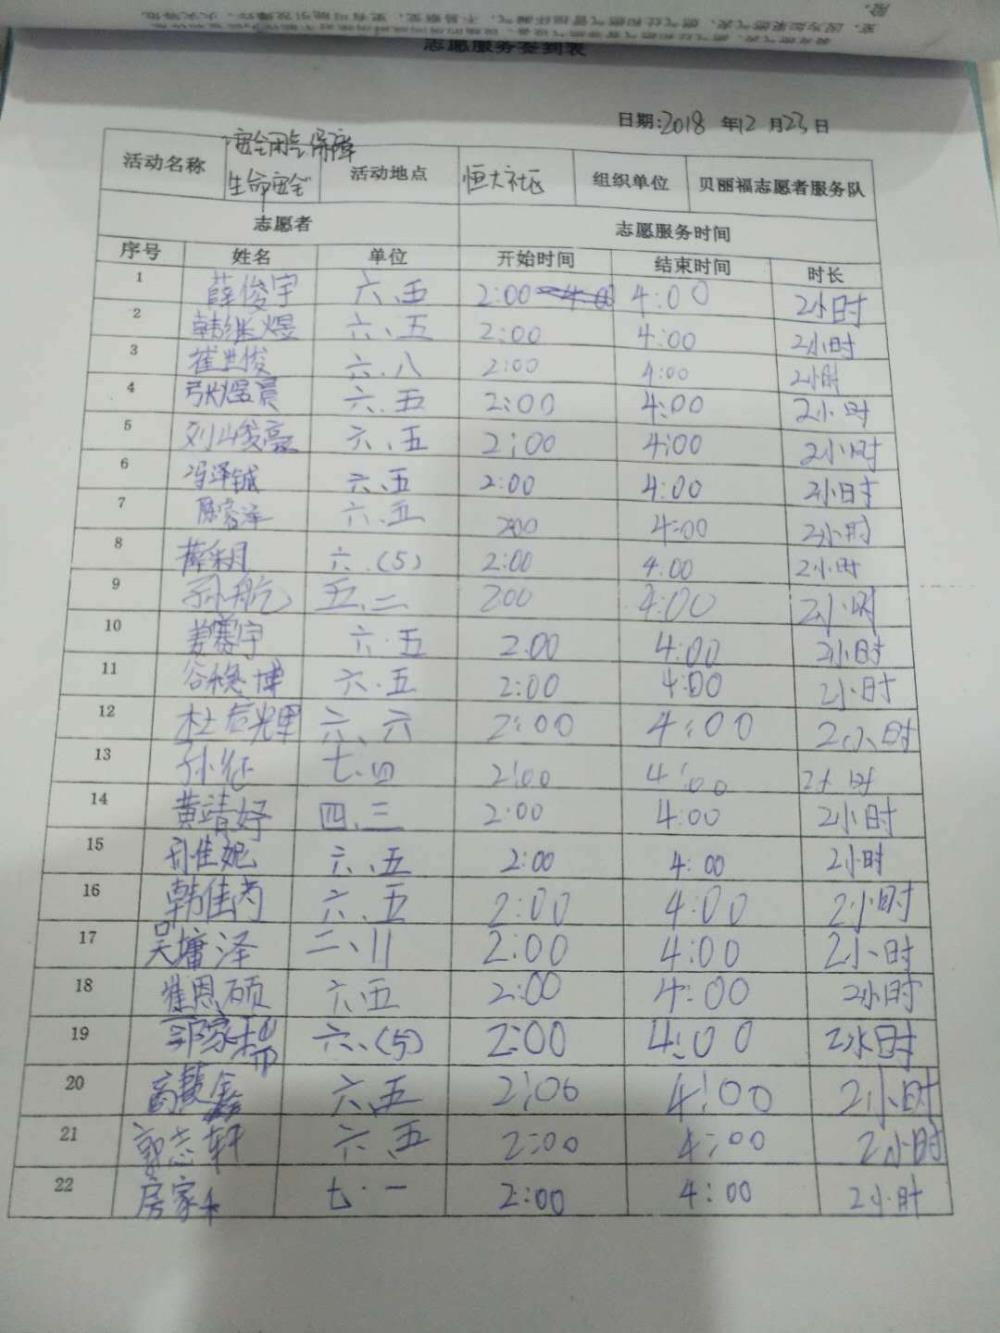 志愿服务签到表
日期:2018 年12 月23日
活动名称 安全用气 保障生命安全 活动地点 恒大社区 组织单位 贝丽福志愿者服务队
志愿者 志愿服务时间
序号 姓名 单位 开始时间 结束时间 时长
1 薛俊宇 六、五 2:00 4:00 2小时
2 韩继煜 六、五 2:00 4:00 2小时
3 崔世俊 六、八 2:00 4:00 2小时
4 张煜晨 六、五 2:00 4:00 2小时
5 刘峻豪 六、五 2:00 4:00 2小时
6 冯泽铖 六、五 2:00 4:00 2小时
7 陈家泽 六、五 2:00 4:00 2小时
8 六、(5) 2:00 4:00 2小时
9 孙航 五、二 200 4:00 2小时
10 姜赛宇 六·五 2:00 4:00 2小时
11 博 六·五 2:00 4:00 2小时
12 六、六 2:00 4:00 2小时
13 孙征 七、四 2:00 4:00 2小时
14 黄靖妤 四、三 2:00 4:00 2小时
15 佳妮 六、五 2:00 4:00 2小时
16 韩佳芮 六、五 2:00 4:00 2小时
17 吴墉泽 二、11 2:00 4:00 2小时
18 崔恩硕 六、五 2:00 4:00 2小时
19 六、(5) 2:00 4:00 2小时
20 高 鑫 六、五 2:00 4:00 2小时
21 郭志轩 六、五 2:00 4:00 2小时
22 房家 七·一 2:00 4:00 2小时